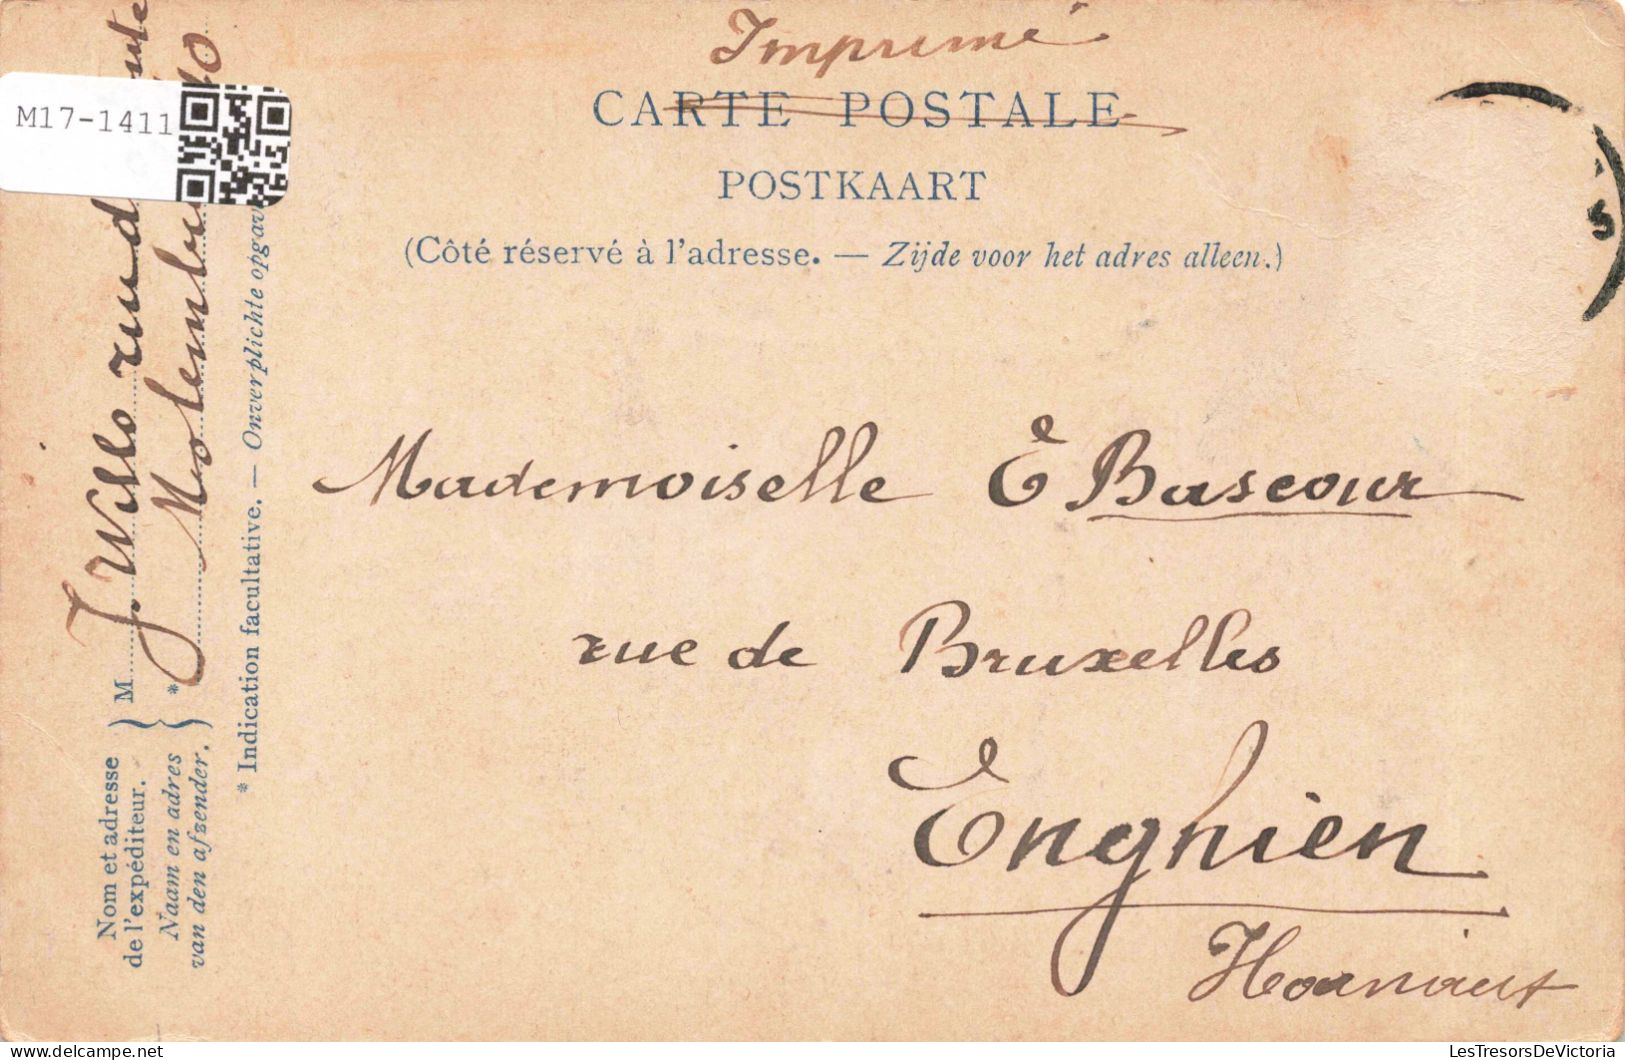 Imprimé
CARTE POSTALE
POSTKAART
(Côté réservé à l'adresse. — Zijde voor het adres alleen.)
M17-1411
Mademoiselle E Bascour
rue de Bruxelles
Enghien
Hainaut
Nom et adresse
de l'expéditeur.
Naam en adres
van den afzender.
M
J. Willo
*
* Indication facultative. — Onverplichte opgav
S
LesTresorsDeVictoria